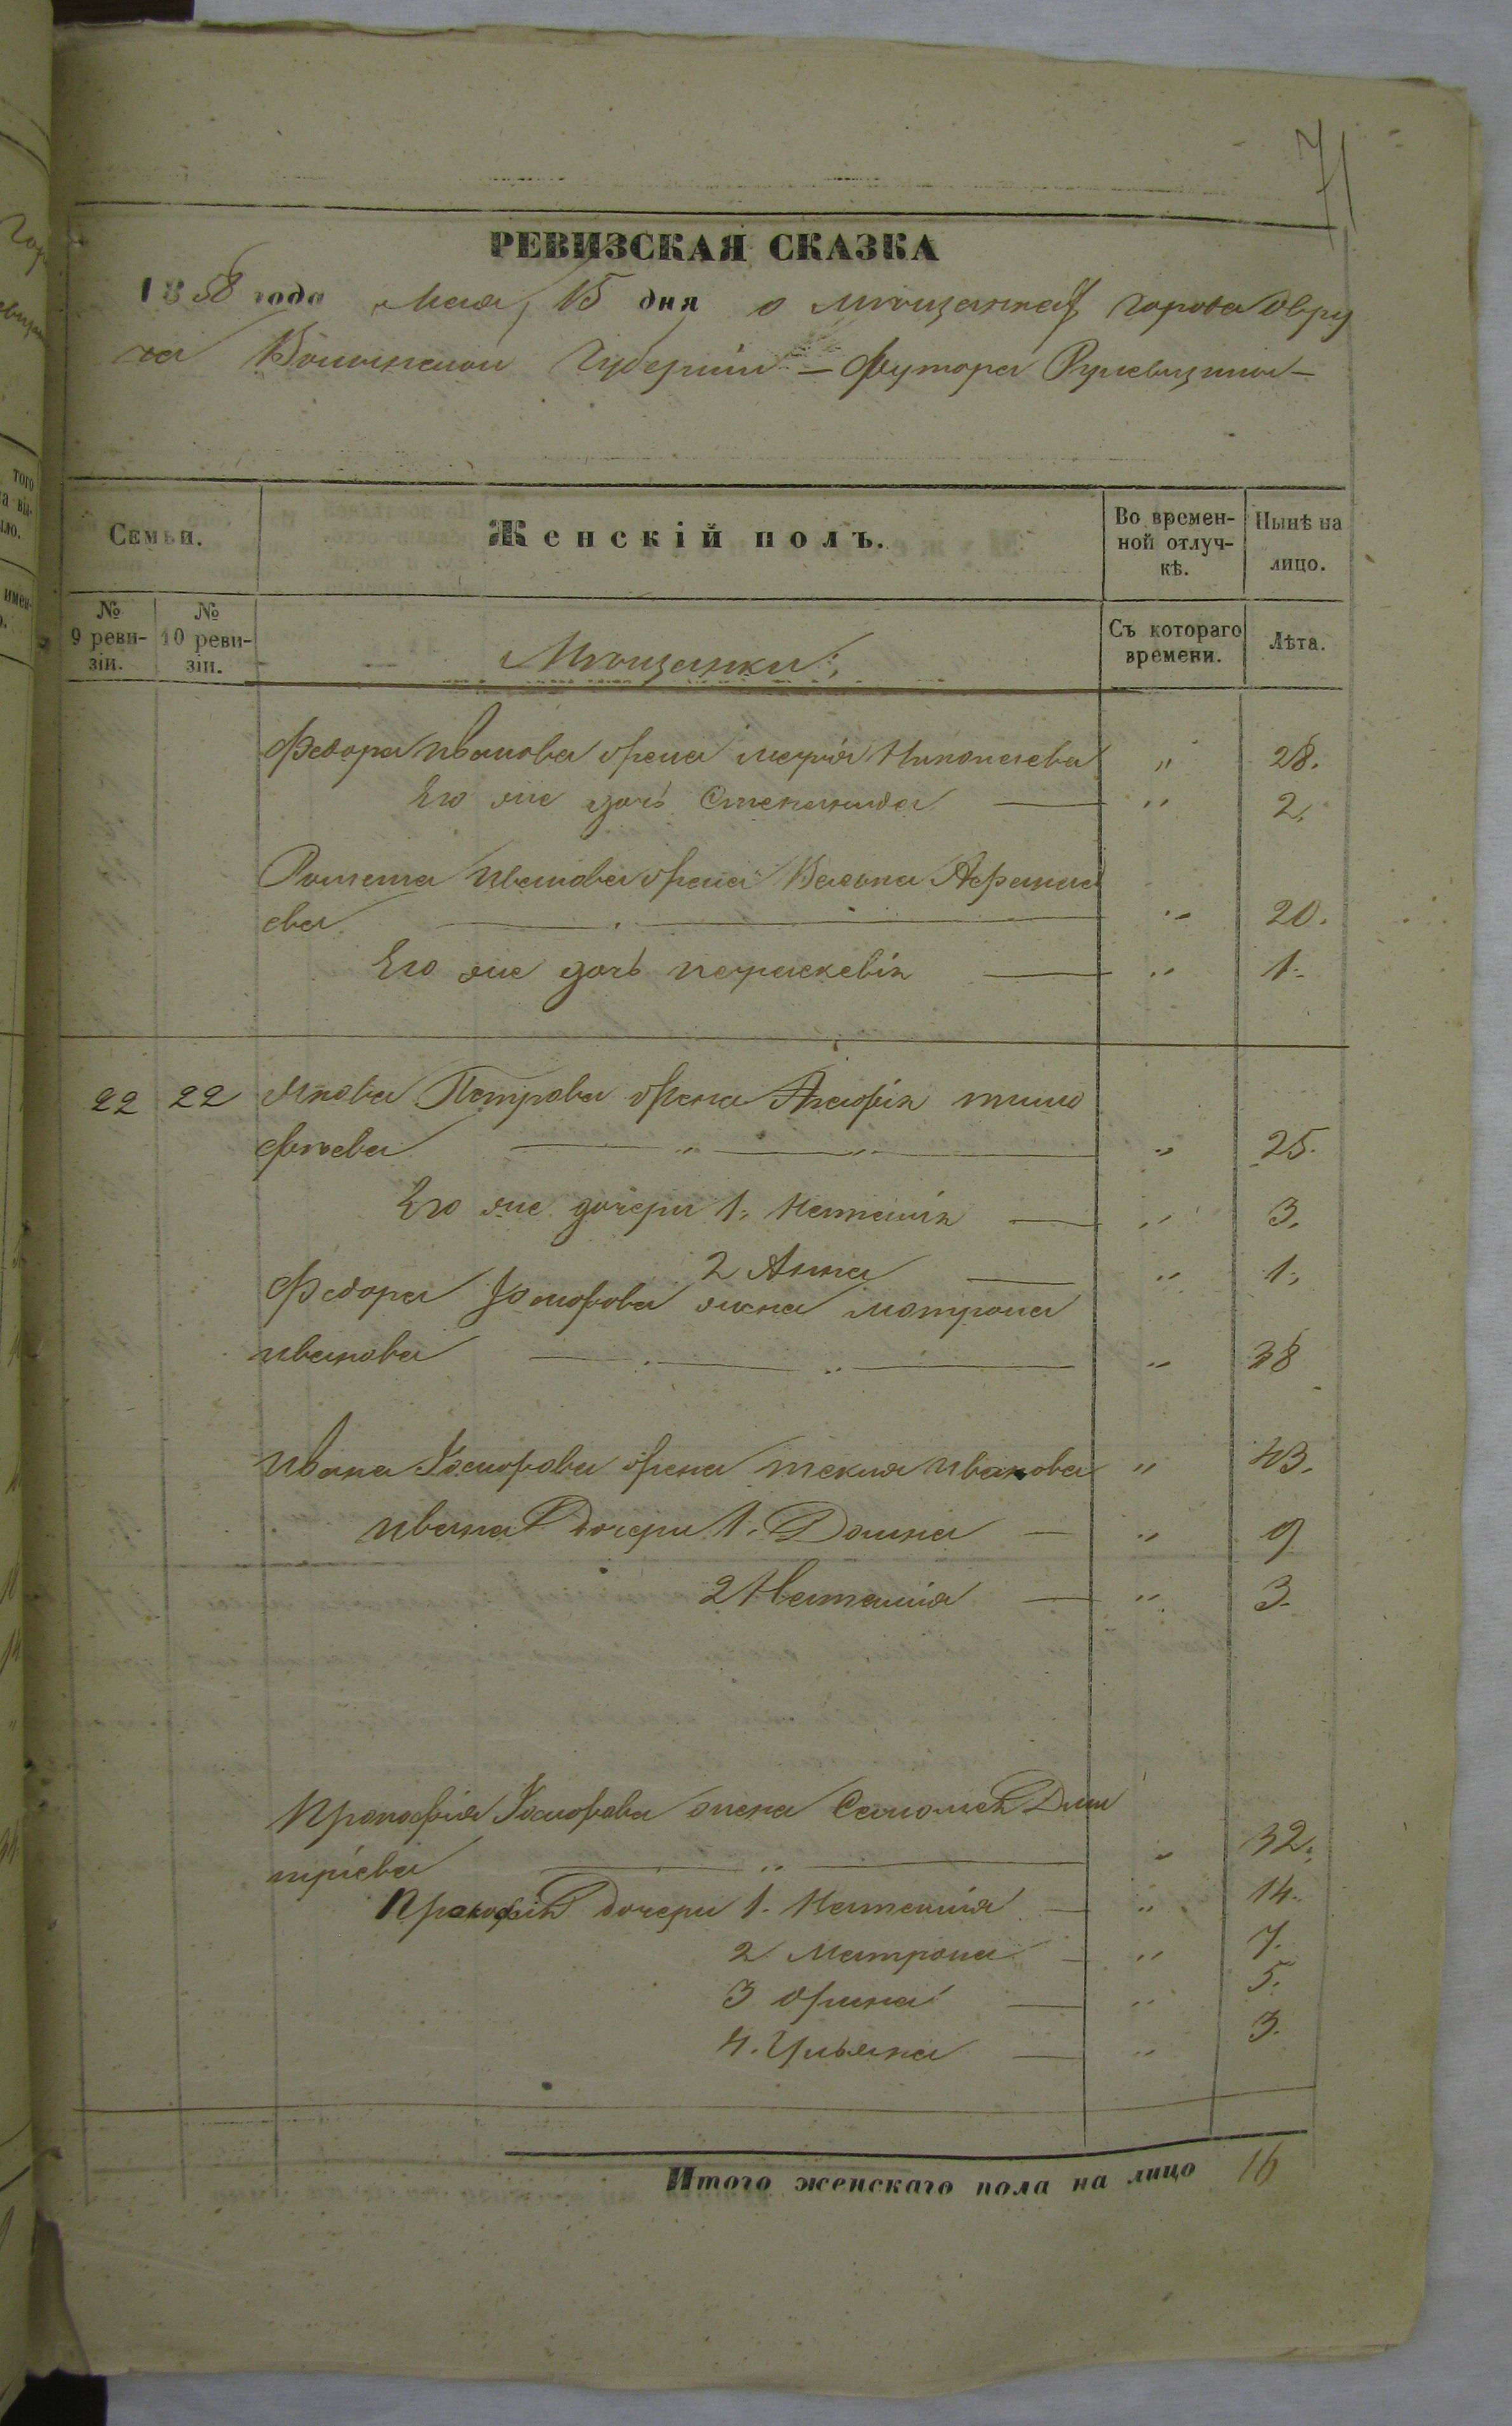 71
РЕВИЗСКАЯ СКАЗКА
1858 года Мая 15 дня о мѣщанкахъ города Овру
ча Волынской Губерніи — Футора
Семьи.
Женскій полъ.
Во времен-
ной отлуч-
кѣ.
Нынѣ на
лицо.
№
9 реви-
зіи.
№
10 реви-
зіи.
Мѣщанки:
Съ котораго
времени.
Лѣта.
Федора Иванова жена Марія Николаева " 28.
Его же дочь Степанида — " 2.
Романа Иванова жена Афанась
ева — " 20.
Его же дочь Параскевія — " 1.
22 22 Якова Петрова жена Тимо
фѣева — " — " — " 25.
Его же дочери 1. Наталія — " 3.
2 Анна — " 1.
Федора жена Мотрона
Иванова — " — " 38
Ивана жена Текля Иванова " 43.
Ивана Дочери 1. Домна — " 9
2 Наталія — " 3.
Прокофія жена Дми
тріева — " — " 32.
Прокофія Дочери 1. Наталія — " 14.
2 Матрона — " 7.
3 Орина — " 5.
4. Ульяна — " 3.
Итого женскаго пола на лицо 16